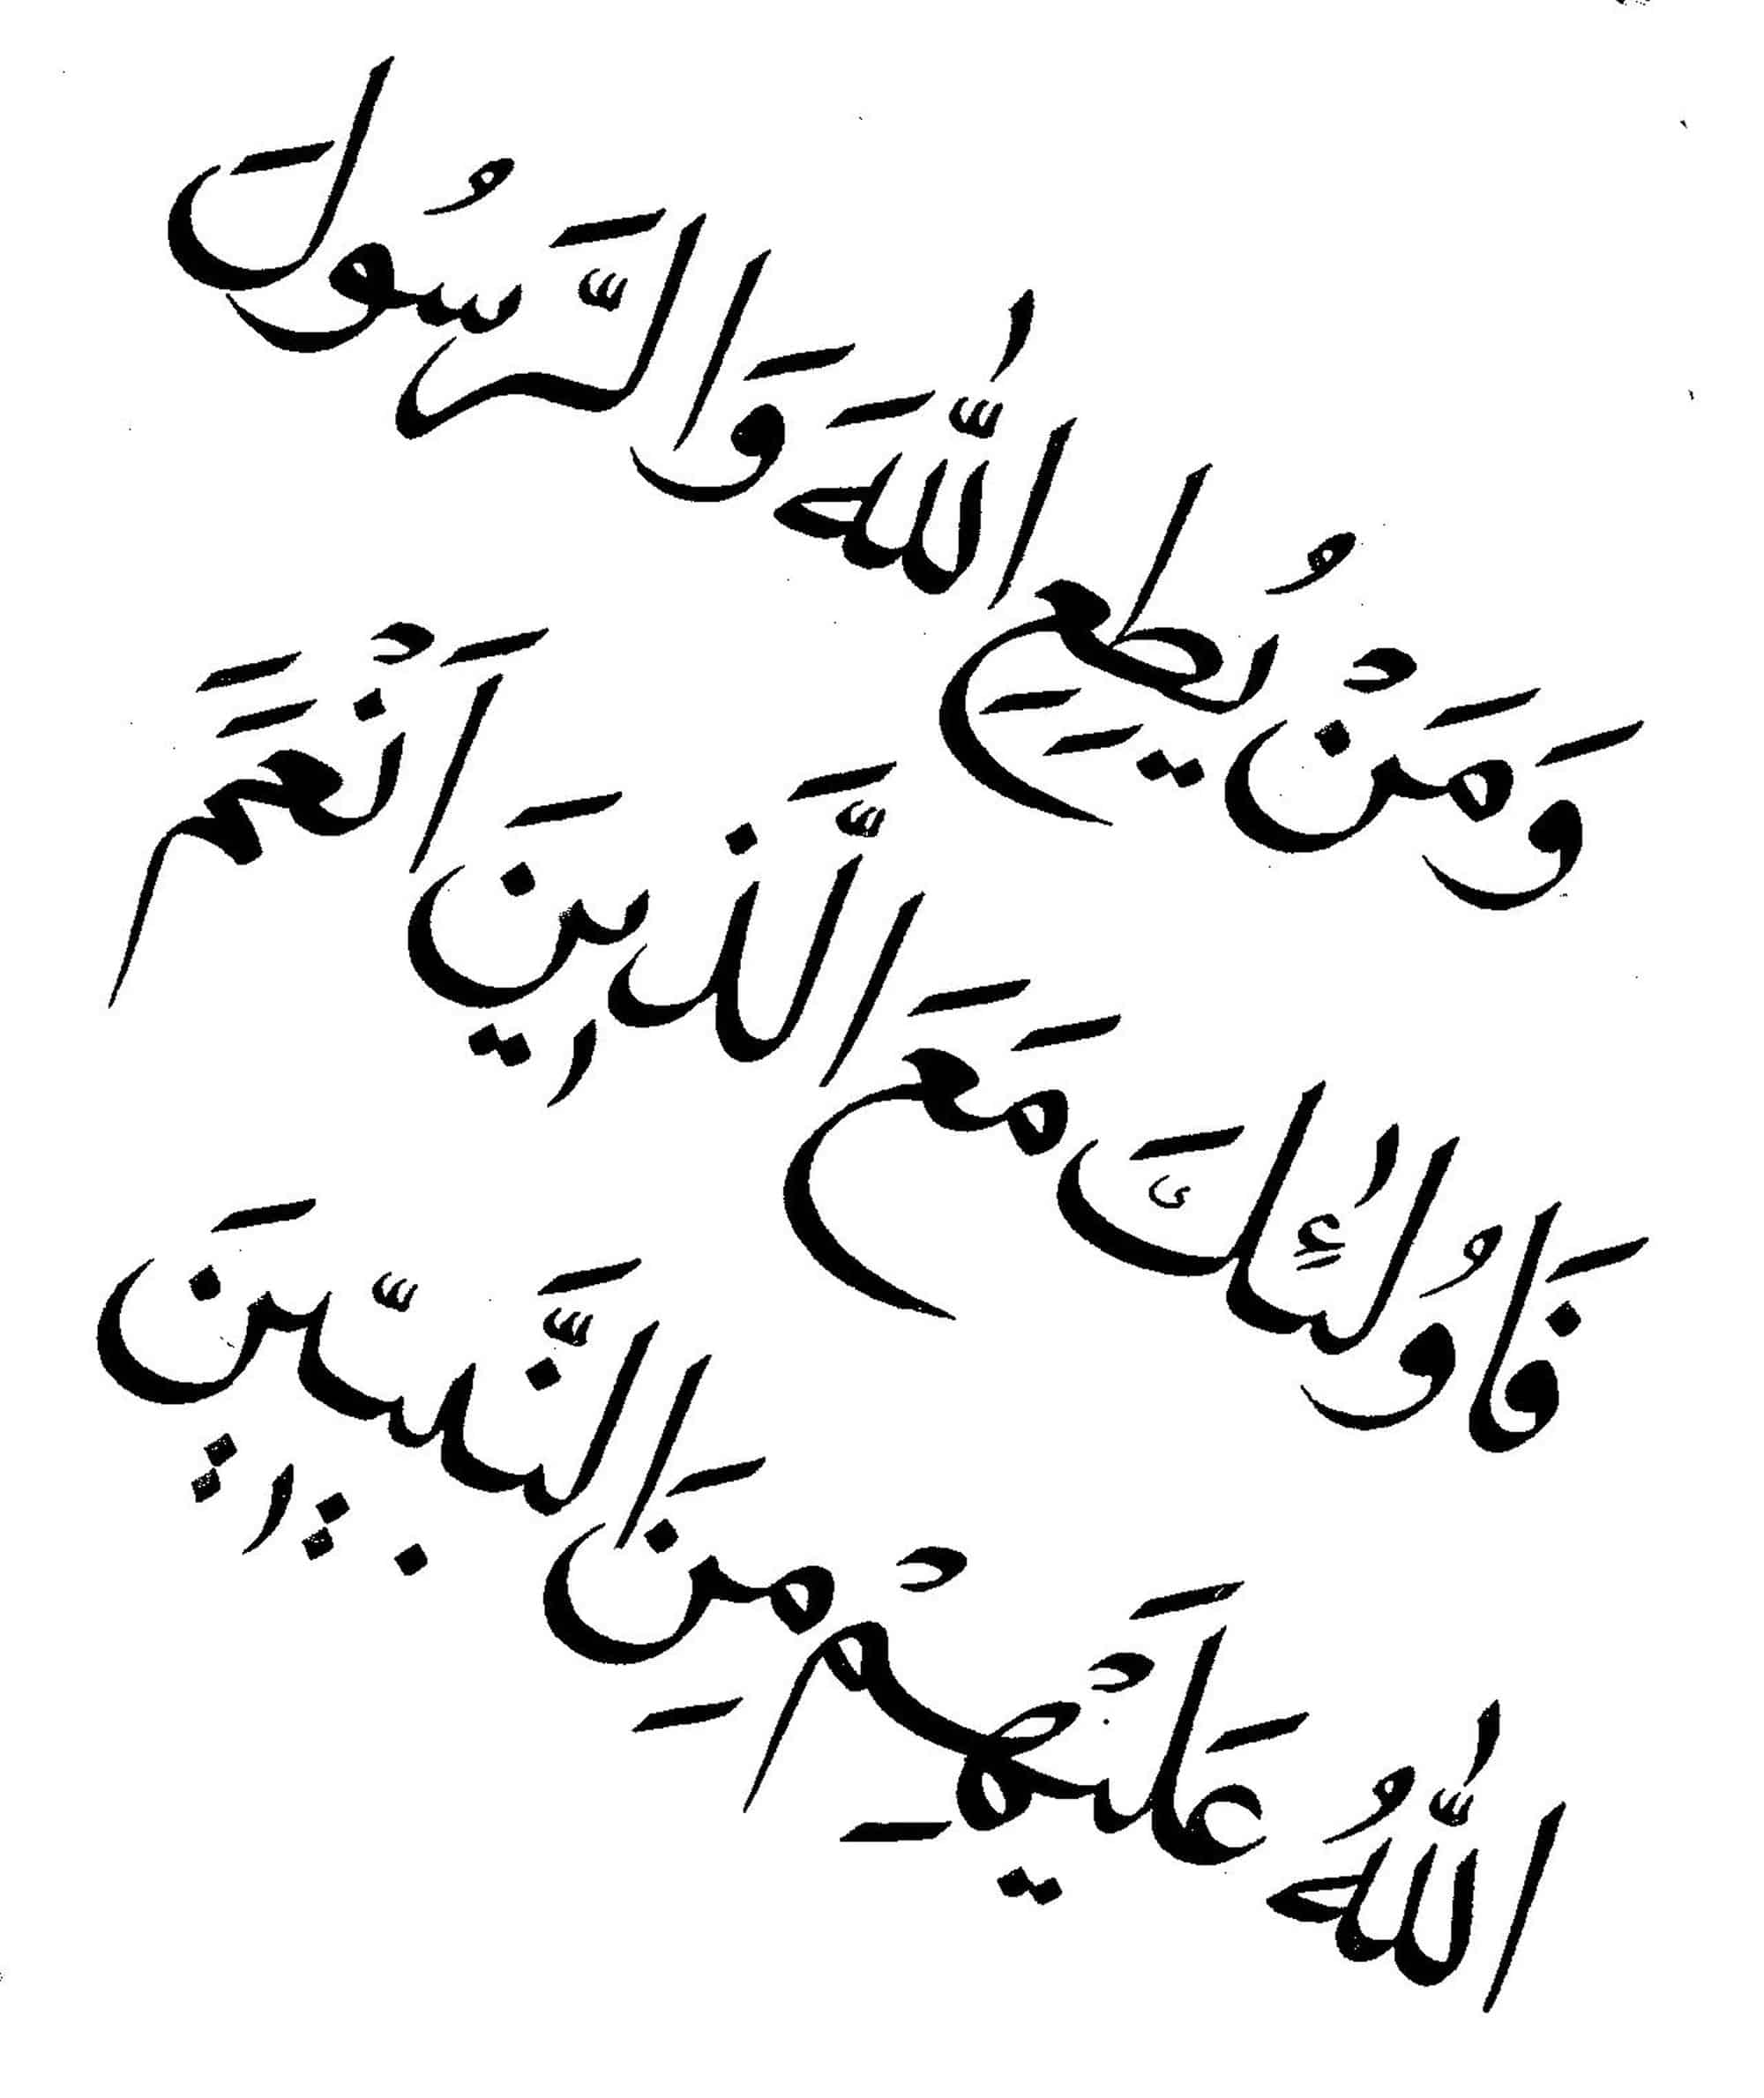 وَمَنْ يُطِعِ اللّٰهَ وَالرَّسُولَ
فَاُولٰئِكَ مَعَ الَّذِينَ اَنْعَمَ
اللّٰهُ عَلَيْهِمْ مِنَ النَّبِيّٖينَ